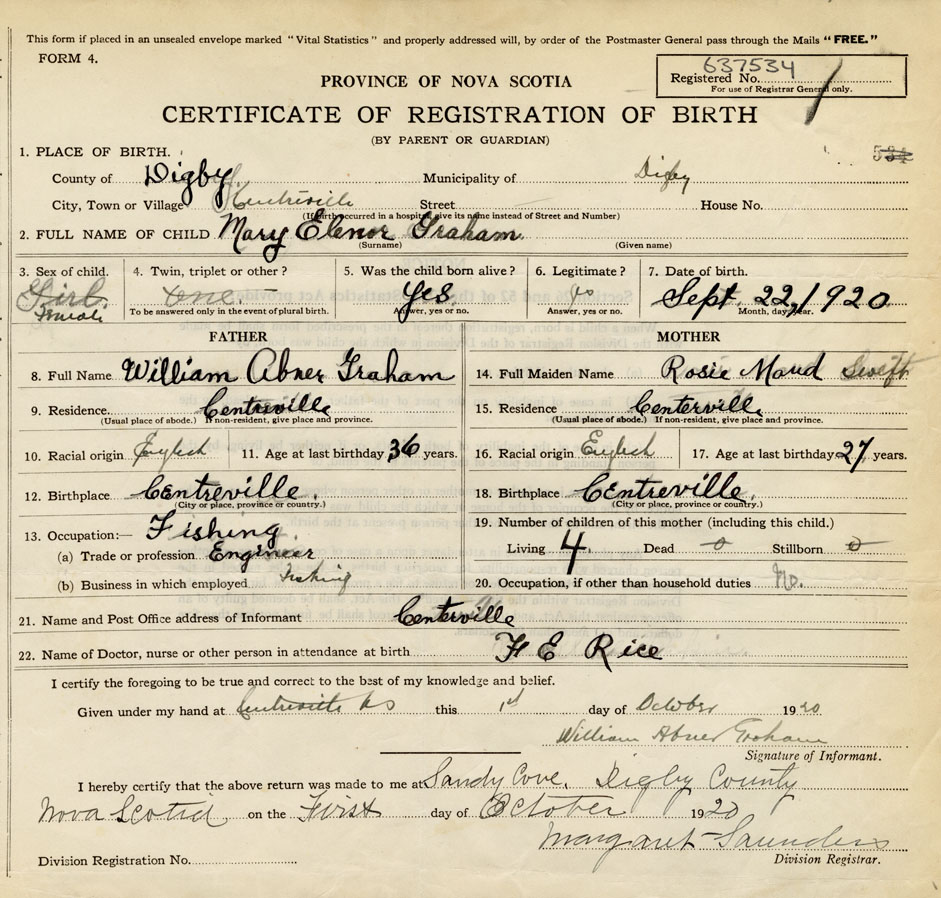 This form if placed in an unsealed envelope marked "Vital Statistics" and properly addressed will, by order of the Postmaster General pass through the Mails "FREE."
FORM 4.
637534
Registered No.
For use of Registrar General only.
PROVINCE OF NOVA SCOTIA
CERTIFICATE OF REGISTRATION OF BIRTH
(BY PARENT OR GUARDIAN)
1. PLACE OF BIRTH.
County of Digby Municipality of Digby
City, Town or Village Centreville Street House No.
(If birth occurred in a hospital give its name instead of Street and Number)
2. FULL NAME OF CHILD Mary Elenor Graham
(Surname) (Given name)
3. Sex of child. 4. Twin, triplet or other? 5. Was the child born alive? 6. Legitimate? 7. Date of birth.
Girl one yes yes Sept. 22, 1920
Female To be answered only in the event of plural birth. Answer, yes or no. Answer, yes or no. Month, day, year.
FATHER MOTHER
8. Full Name William Abner Graham 14. Full Maiden Name Rosie Maud Swift
9. Residence Centreville 15. Residence Centerville
(Usual place of abode.) If non-resident, give place and province. (Usual place of abode.) If non-resident, give place and province.
10. Racial origin English 11. Age at last birthday 36 years. 16. Racial origin English 17. Age at last birthday 27 years.
12. Birthplace Centreville. 18. Birthplace Centreville.
(City or place, province or country.) (City or place, province or country.)
13. Occupation:— Fishing 19. Number of children of this mother (including this child.)
(a) Trade or profession Engineer Living 4 Dead 0 Stillborn 0
(b) Business in which employed Fishing 20. Occupation, if other than household duties No.
21. Name and Post Office address of Informant Centerville
22. Name of Doctor, nurse or other person in attendance at birth F E Rice
I certify the foregoing to be true and correct to the best of my knowledge and belief.
Given under my hand at Centreville NS this 1st day of October 1920
William Abner Graham
Signature of Informant.
I hereby certify that the above return was made to me at Sandy Cove, Digby County
Nova Scotia on the First day of October 1920
Margaret Saunders
Division Registration No. Division Registrar.